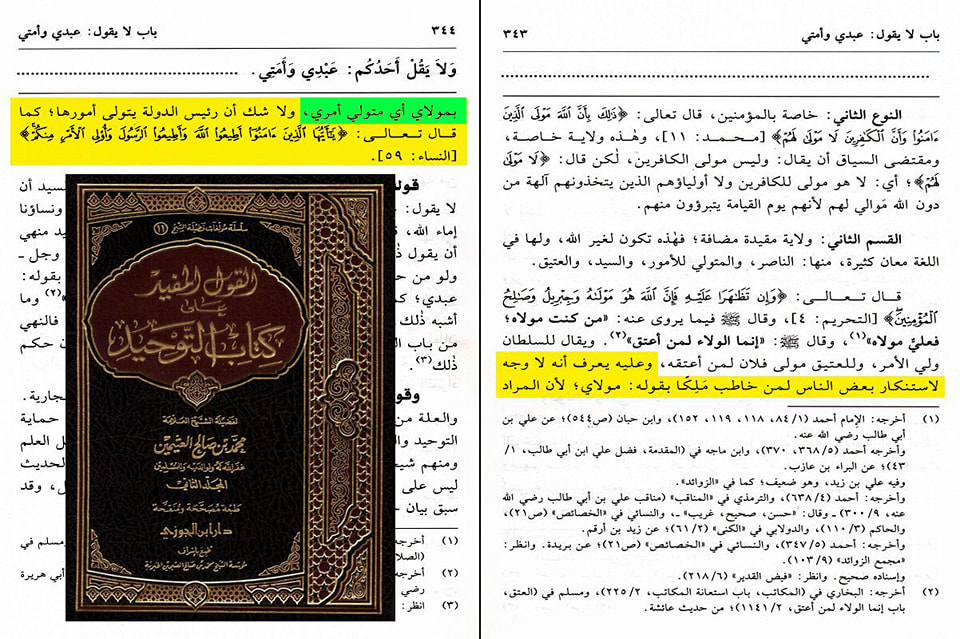 باب لا يقول: عبدي وأمتي ٣٤٣
النوع الثاني: خاصة بالمؤمنين، قال تعالى: ﴿ذَلِكَ بِأَنَّ اللَّهَ مَوْلَى الَّذِينَ
ءَامَنُوا وَأَنَّ الْكَافِرِينَ لَا مَوْلَى لَهُمْ﴾ [محمد: ١١]، وهٰذه ولاية خاصة،
ومقتضى السياق أن يقال: وليس مولى الكافرين، لٰكن قال: ﴿لَا مَوْلَى
لَهُمْ﴾؛ أي: لا هو مولى للكافرين ولا أولياؤهم الذين يتخذونهم آلهة من
دون الله مَوالي لهم لأنهم يوم القيامة يتبرؤون منهم.
القسم الثاني: ولاية مقيدة مضافة؛ فهٰذه تكون لغير الله، ولها في
اللغة معان كثيرة، منها: الناصر، والمتولي للأمور، والسيد، والعتيق.
قال تعالى: ﴿وَإِن تَظَاهَرَا عَلَيْهِ فَإِنَّ اللَّهَ هُوَ مَوْلَاهُ وَجِبْرِيلُ وَصَالِحُ
الْمُؤْمِنِينَ﴾ [التحريم: ٤]، وقال ﷺ فيما يروى عنه: «من كنت مولاه؛
فعليٌّ مولاه»(١)، وقال ﷺ: «إنما الولاء لمن أعتق»(٢). ويقال للسلطان
ولي الأمر، وللعتيق مولى فلان لمن أعتقه، وعليه يعرف أنه لا وجه
لاستنكار بعض الناس لمن خاطب مَلِكًا بقوله: مولاي؛ لأن المراد
(١) أخرجه: الإمام أحمد (١/ ٨٤، ١١٨، ١١٩، ١٥٢)، وابن حبان (ص٥٤٤)؛ عن علي بن
أبي طالب رضي الله عنه.
وأخرجه أحمد (٥/ ٣٦٨، ٣٧٠)، وابن ماجه في (المقدمة، فضل علي ابن أبي طالب، ١/
٤٣)؛ عن البراء بن عازب.
وفيه علي بن زيد، وهو ضعيف؛ كما في «الزوائد».
وأخرجه: أحمد (٤/ ٦٣٨)، والترمذي في «المناقب» (مناقب علي بن أبي طالب رضي الله
عنه، ٩/ ٣٠٠) ـ وقال: «حسن، صحيح، غريب» ـ، والنسائي في «الخصائص» (ص٢١)،
والحاكم (٣/ ١١٠)، والدولابي في «الكنى» (٢/ ٦١)؛ عن زيد بن أرقم.
وأخرجه: أحمد (٥/ ٣٤٧)، والنسائي في «الخصائص» (ص٢١)؛ عن بريدة. وانظر:
«مجمع الزوائد» (٩/ ١٠٣).
وإسناده صحيح. وانظر: «فيض القدير» (٦/ ٢١٨).
(٢) أخرجه: البخاري في (المكاتب، باب استعانة المكاتب، ٢/ ٢٢٥)، ومسلم في (العتق،
باب إنما الولاء لمن أعتق، ٢/ ١١٤١)؛ من حديث عائشة.
٣٤٤ باب لا يقول: عبدي وأمتي
وَلَا يَقُلْ أَحَدُكُم: عَبْدِي وَأَمَتِي.
بمولاي أي متولي أمري، ولا شك أن رئيس الدولة يتولى أمورها؛ كما
قال تعالى: ﴿يَا أَيُّهَا الَّذِينَ ءَامَنُوا أَطِيعُوا اللَّهَ وَأَطِيعُوا الرَّسُولَ وَأُولِي الْأَمْرِ مِنكُمْ﴾
[النساء: ٥٩].
السيد أن
لا يقول:
ونساؤنا
إماء الله،
منهي
أن يقول
وجل ـ
ولو من
بقوله:
عبدي؛
(٢) وما
أشبه ذٰلك
فالنهي
من باب
حكم
ذٰلك(٣).
وقو
جارية.
والعلة من
حماية
التوحيد
العلم
ومنهم
الحديث
ليس على
وقد
سبق بيان
(١) أخرجه
ومسلم في
(٢) أخرجه
أبي هريرة
رضي
(٣) انظر:
سلسلة مؤلفات فضيلة الشيخ (١١)
القول المفيد
على
كتاب التوحيد
لفضيلة الشيخ العلامة
محمد بن صالح العثيمين
غفر الله له ولوالديه وللمسلمين
المجلد الثاني
طبعة مصححة ومنقحة
دار ابن الجوزي
طبع بإشراف
مؤسسة الشيخ محمد بن صالح العثيمين الخيرية